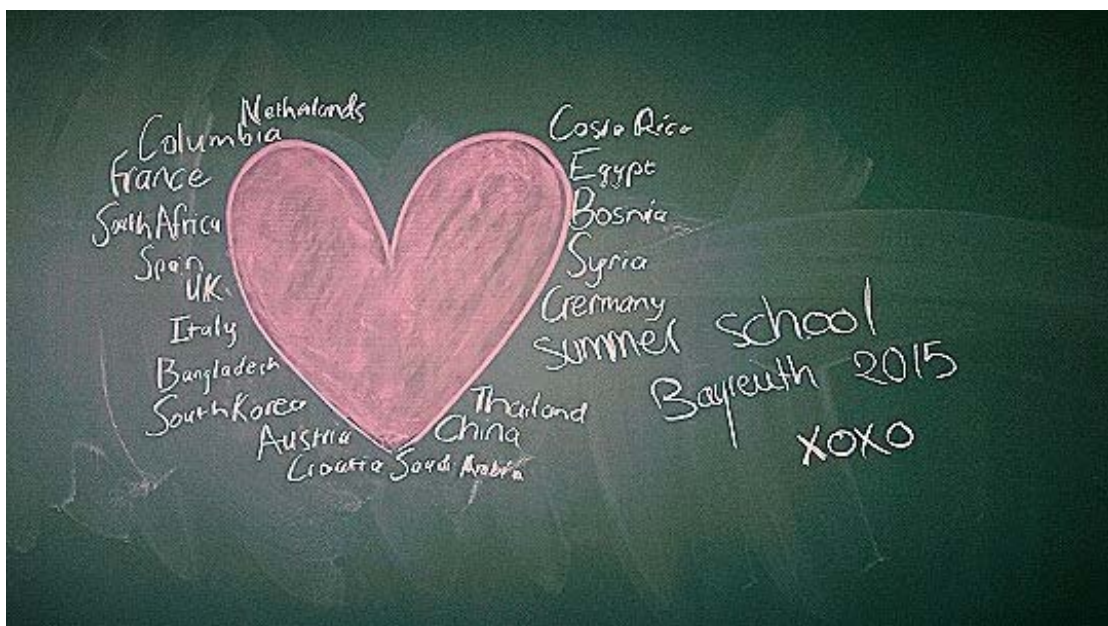 Nethalands
Columbia
France
South Africa
Spain
UK.
Italy
Bangladesh
South Korea
Austria
Croatia
Saudi Arabia
China
Thailand
Costa Rica
Egypt
Bosnia
Syria
Germany
summer school
Bayreuth 2015
xoxo